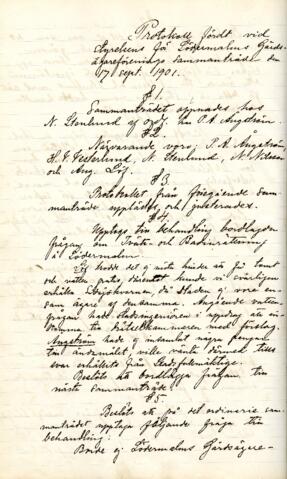 Protokoll fördt vid
Styrelsens för Södermalms Gårds-
egareförenings sammanträde den
17 Sept. 1901.
§ 1.
Sammanträdet öppnades hos
N. Stenlund af ordf. hr P. A. Ångström.
§ 2.
Närvarande voro: P. A. Ångström,
H. G. Vesterlund, N. Stenlund, N. Nilsson
och Aug. Löf.
§ 3.
Protokollet från föregående sam-
manträde upplästes och justerades.
§ 4.
Upptogs till behandling bordlagda
frågan om Tvätt- och Badinrättning
å Södermalm.
Löf trodde det ej möta hinder att få tomt
och vatten gratis, däremot kunde vi svårligen
erhålla , då Staden ej vore en-
sam ägare af densamma. Angående vatten-
frågan hade stadsingeniören i uppdrag att in-
komma till drätselkammaren med förslag.
Ångström hade ej inhämtat några pengar
till ändamålet, ville vänta dermed tills
svar erhållits från Stadsfullmäktige.
Beslöts att bordlägga frågan till
nästa sammanträde.
§ 5.
Beslöts att på det ordinarie sam-
manträdet upptaga följande fråga till
behandling:
Borde ej Södermalms Gårdsägare-